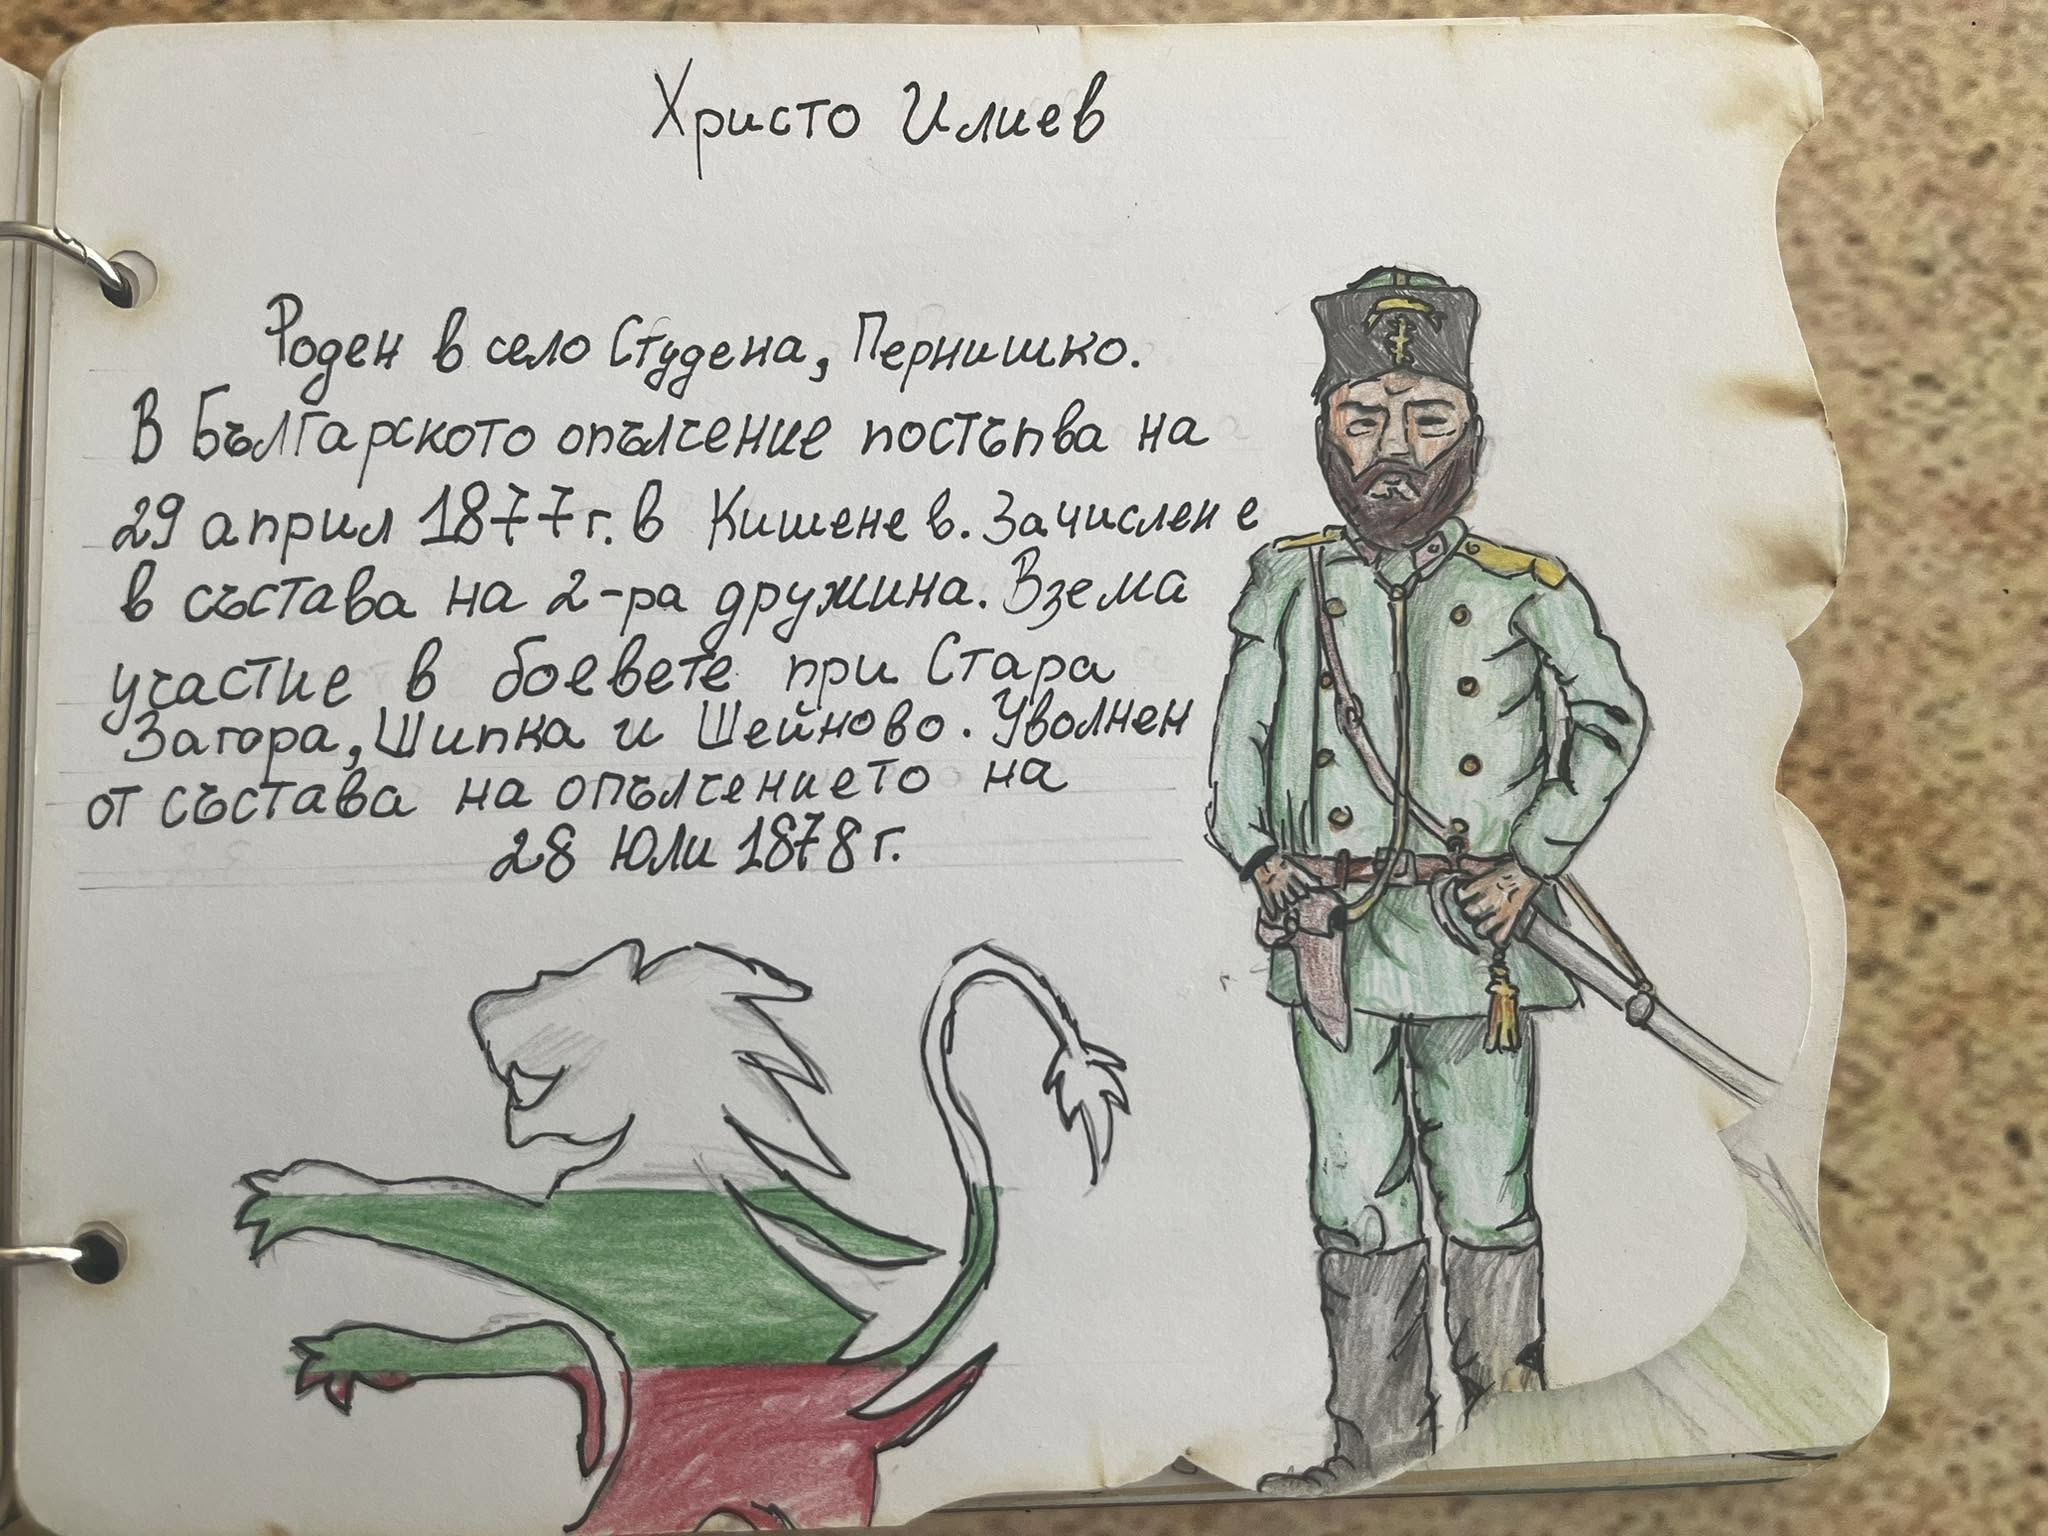 Христо Илиев
Роден в село Студена, Пернишко.
В Българското опълчение постъпва на
29 април 1877 г. в Кишенев. Зачислен е
в състава на 2-ра дружина. Взема
участие в боевете при Стара
Загора, Шипка и Шейново. Уволнен
от състава на опълчението на
28 юли 1878 г.